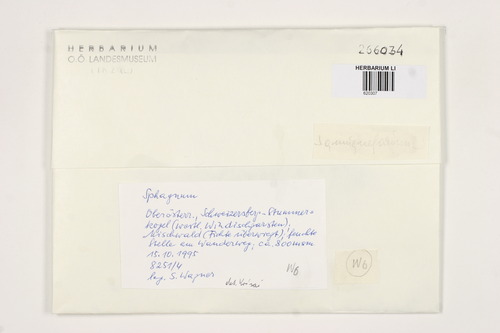 HERBARIUM
O.Ö. LANDESMUSEUM
266034
HERBARIUM LI
620307
Sphagnum
Oberösterr., Schwarzenberg-Strummer-
kogel (westl. Windischgarsten),
Mischwald (Fichte überwiegt), feuchte
Stelle am Wanderweg; ca. 800 m
15.10.1995
8251/4
leg. S. Wagner
W6
det. Krisai
W6